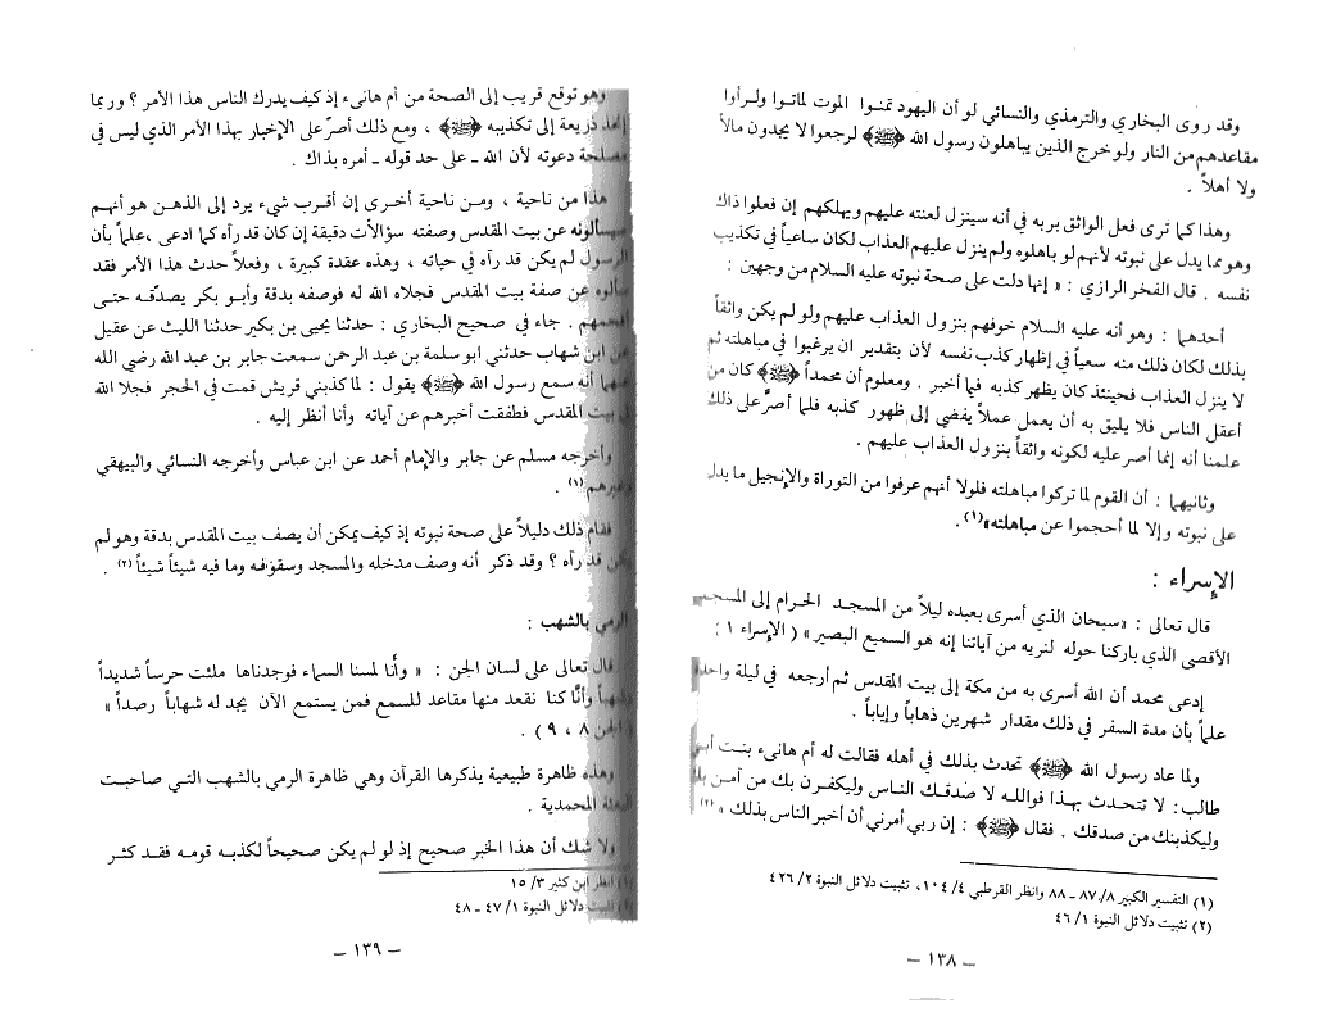 وقد روى البخاري والترمذي والنسائي لو أن اليهود تمنوا الموت لماتوا ولرأوا
مقاعدهم من النار ولو خرج الذين يباهلون رسول الله ﴿ﷺ﴾ لرجعوا لا يجدون مالاً
ولا أهلاً .
وهذا كما ترى فعل الواثق بربه في أنه سينزل لعنته عليهم ويهلكهم إن فعلوا ذاك
وهو مما يدل على نبوته لأنهم لو باهلوه ولم ينزل عليهم العذاب لكان ساعياً في تكذيب
نفسه . قال الفخر الرازي : « إنها دلت على صحة نبوته عليه السلام من وجهين :
أحدهما : وهو أنه عليه السلام خوفهم بنزول العذاب عليهم ولو لم يكن واثقاً
بذلك لكان ذلك منه سعياً في إظهار كذب نفسه لأن بتقدير ان يرغبوا في مباهلته ثم
لا ينزل العذاب فحينئذ كان يظهر كذبه فيما أخبر . ومعلوم أن محمداً ﴿ﷺ﴾ كان من
أعقل الناس فلا يليق به أن يعمل عملاً يفضي إلى ظهور كذبه فلما أصرَّ على ذلك
علمنا أنه إنما أصر عليه لكونه واثقاً بنزول العذاب عليهم .
وثانيهما : أن القوم لما تركوا مباهلته فلولا أنهم عرفوا من التوراة والإنجيل ما يدل
على نبوته وإلا لما أحجموا عن مباهلته»(١) .
الإسراء :
قال تعالى : «سبحان الذي أسرى بعبده ليلاً من المسجد الحرام إلى المسجد
الأقصى الذي باركنا حوله لنريه من آياتنا إنه هو السميع البصير» ( الإسراء ١ ;
إدعى محمد أن الله أسرى به من مكة إلى بيت المقدس ثم أرجعه في ليلة واحدة
علماً بأن مدة السفر في ذلك مقدار شهرين ذهاباً وإياباً .
ولما عاد رسول الله ﴿ﷺ﴾ تحدث بذلك في أهله فقالت له أم هانىء بنت أبي
طالب: لا تتحدث بهذا فوالله لا صدقك الناس وليكفرن بك من آمن بك
وليكذبنك من صدقك . فقال ﴿ﷺ﴾ : إن ربي أمرني أن أخبر الناس بذلك »(٢)
(١) التفسير الكبير ٨/ ٨٧ ـ ٨٨ وانظر القرطبي ٤/ ١٠٤، تثبيت دلائل النبوة ٢/ ٤٢٦
(٢) تثبيت دلائل النبوة ١/ ٤٦
– ١٣٨ –
وهو توقع قريب إلى الصحة من أم هانىء إذ كيف يدرك الناس هذا الأمر ؟ وربما
ذريعة إلى تكذيبه ﴿ﷺ﴾ ، ومع ذلك أصرّ على الإخبار بهذا الأمر الذي ليس في
مصلحة دعوته لأن الله ـ على حد قوله ـ أمره بذاك .
هذا من ناحية ، ومن ناحية أخرى إن أقرب شيء يرد إلى الذهن هو أنهم
سيسألونه عن بيت المقدس وصفته سؤالات دقيقة إن كان قد رآه كما ادعى ،علماً بأن
الرسول لم يكن قد رآه في حياته ، وهذه عقدة كبيرة ، وفعلاً حدث هذا الأمر فقد
سألوه عن صفة بيت المقدس فجلاه الله له فوصفه بدقة وأبو بكر يصدّقه حتى
أفحمهم . جاء في صحيح البخاري : حدثنا يحيى بن بكير حدثنا الليث عن عقيل
عن ابن شهاب حدثني ابو سلمة بن عبد الرحمن سمعت جابر بن عبد الله رضي الله
عنهما أنه سمع رسول الله ﴿ﷺ﴾ يقول : لما كذبني قريش قمت في الحجر فجلا الله
لي بيت المقدس فطفقت أخبرهم عن آياته وأنا أنظر إليه .
وأخرجه مسلم عن جابر والإمام أحمد عن ابن عباس وأخرجه النسائي والبيهقي
وغيرهم(١) .
فقام ذلك دليلاً على صحة نبوته إذ كيف يمكن أن يصف بيت المقدس بدقة وهو لم
يكن قد رآه ؟ وقد ذكر أنه وصف مدخله والمسجد وسقوفه وما فيه شيئاً شيئاً(٢) .
الرمي بالشهب :
قال تعالى على لسان الجن : « وأنا لمسنا السماء فوجدناها ملئت حرساً شديداً
وشهباً وأنَّا كنا نقعد منها مقاعد للسمع فمن يستمع الآن يجد له شهاباً رصداً»
( الجن ٨ ، ٩ ) .
وهذه ظاهرة طبيعية يذكرها القرآن وهي ظاهرة الرمي بالشهب التي صاحبت
البعثة المحمدية .
ولا شك أن هذا الخبر صحيح إذ لو لم يكن صحيحاً لكذبه قومه فقد كثر
(١) انظر ابن كثير ٣/ ١٥
(٢) تثبيت دلائل النبوة ١/ ٤٧ ـ ٤٨
– ١٣٩ –